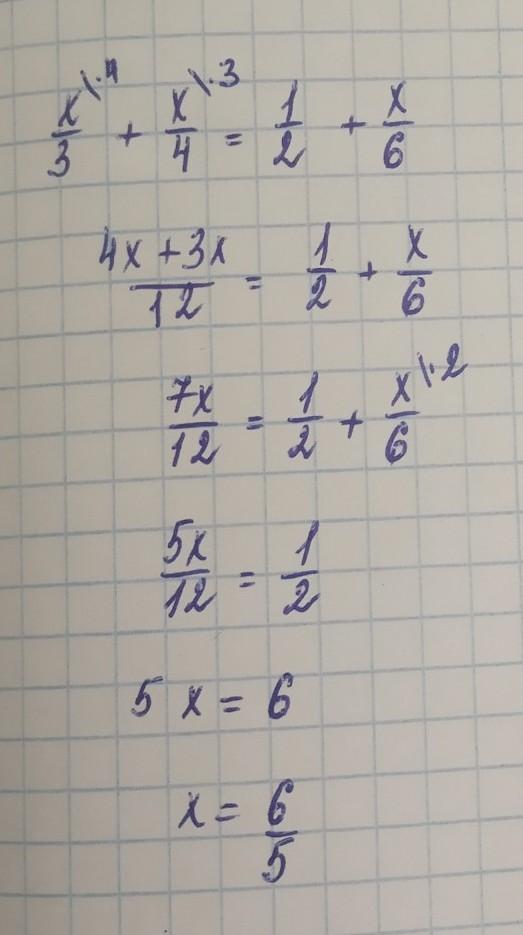 x/3 \·4 + x/4 \·3 = 1/2 + x/6
4x + 3x/12 = 1/2 + x/6
7x/12 = 1/2 + x/6 \·2
5x/12 = 1/2
5 x = 6
x = 6/5